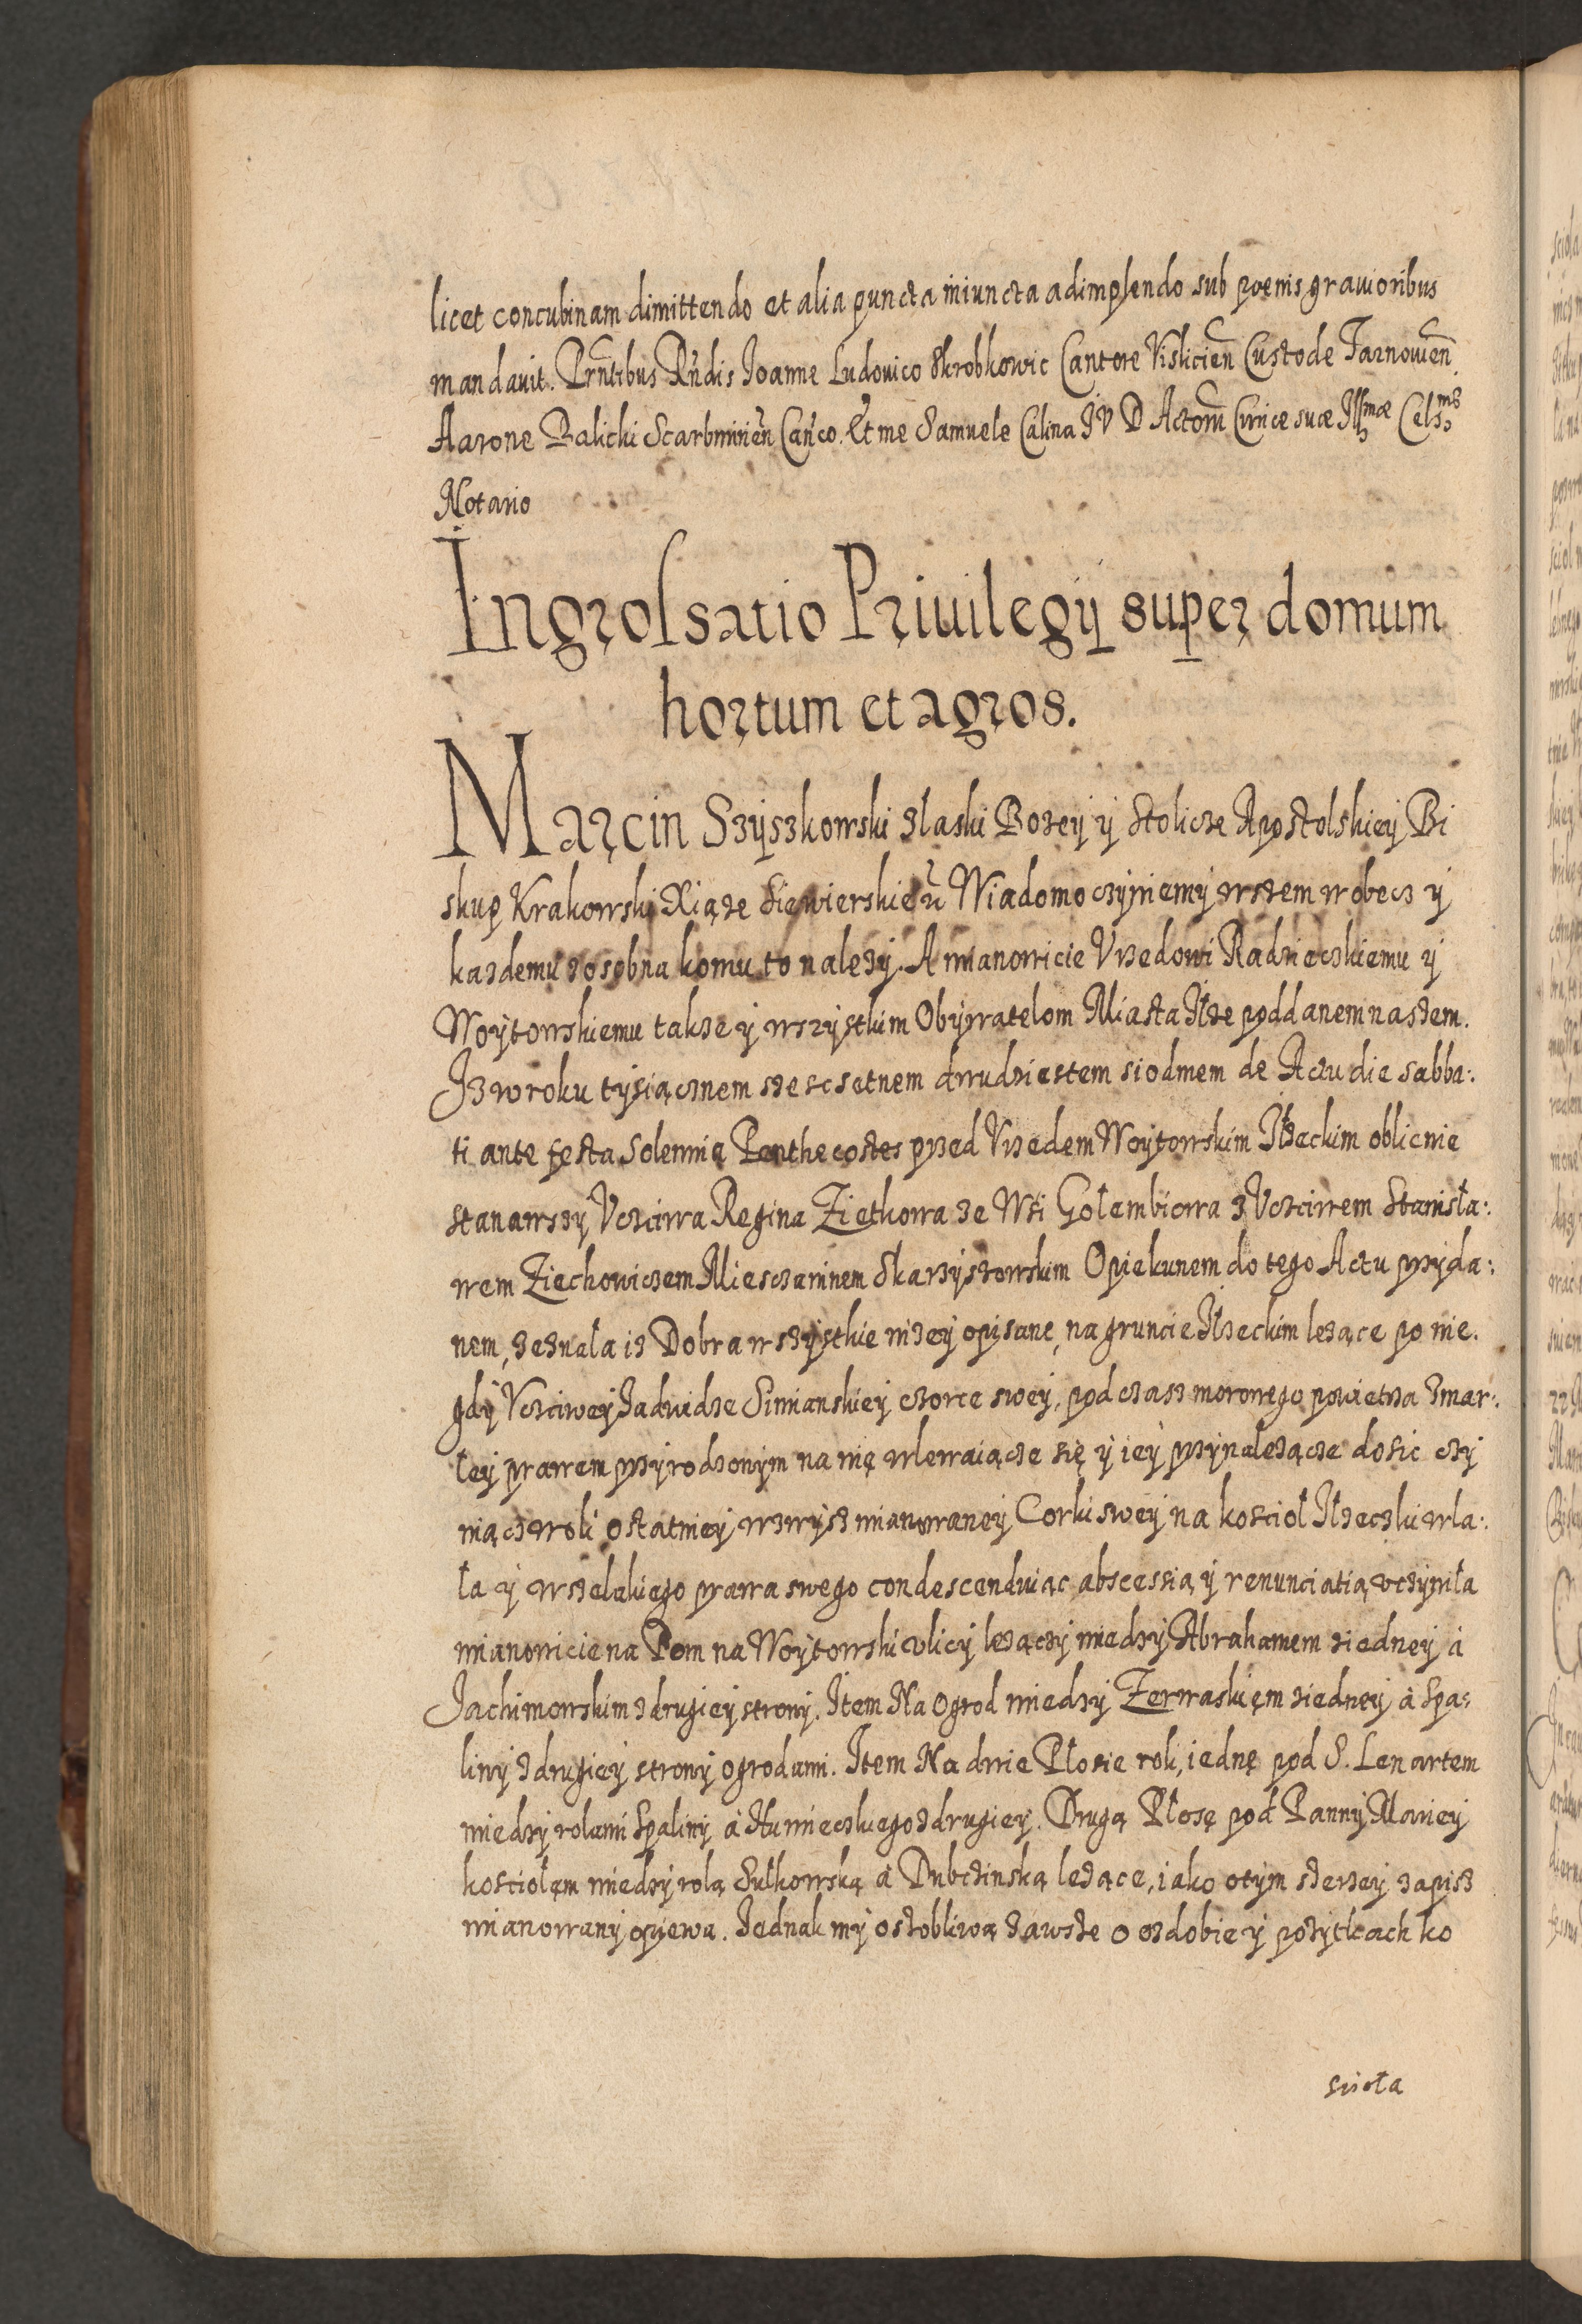 licet concubinam dimittendo et alia puncta iniuncta adimplendo sub poenis grauioribus
mandauit. Prntibus Rndis Joanne Ludouico Skrobkowic Cantore Vislicien Custode Tarnouien
Aarone Balicki Scarbmirien Canco. Et me Samuele Calina J V D Actoru Curiæ suæ Illmæ Cels
Notario
Ingrossatio Priuilegij super domum
hortum et agros.
Marcin Szyszkowski z laski Bozey y Stolicze Apostolskiey Bi
skup Krakowski Xiąze Siewierskie Wiadomo czyniemy wszem wobecz y
kazdemu z osobna komu to nalezy. A mianowicie Vrzedowi Radzieczkiemu y
Woytowskiemu takze y wszystkim Obywatelom Miasta Ilze poddanem naszem.
Iz w roku tysiącznem szescsetnem dwudziestem siodmem de Actu die sabba:
ti ante festa Solennia Penthecostes przed Vrzedem Woytowskim Ilzeckim oblicnie
stanawszy Vczciwa Regina Zietkowa ze Wsi Gołembiowa z Vczciwem Stanisła:
wem Ziechowiczem Miesczaninem Skarzyszowskim Opiekunem do tego Actu przyda:
nem, zeznała iz Dobra wszystkie nizey opisane, na gruncie Iłzeckim lezące po nie.
gdy Vczciwey Jadwidze Simianskiey czorce swey, pod czasz morowego powietrza zmar:
łey prawem przyrodzonym na nię wlewaiącze się y iey przynalezącze dosic czy
niącz woli ostatniey wzwysz mianowaney Corki swey na kościoł Iłzeczki wla:
ła y wszelakiego prawa swego condescenduiąc abscessią y renunciatią vczyniła
mianowicie na Dom na Woytowski vlicy lezączy miedzy Abrahamem z iedney à
Jachimowskim z drugiey strony. Item Na Ogrod miedzy Zerwaskięm z iedney à Spa:
liny z drugiey strony ogrodami. Item Na dwie Płosie roli, iednę pod S. Lenartem
miedzy rolami Spaliny à Hunieczkiego z drugiey. Drugą Płosę pod Panny Mariey
kościołem miedzy rolą Sułkowską à Dubczinską lezące, iako o tym szerzey zapisz
mianowany opiewa. Jednak my oszobliwą zawsze o ozdobie y pozytkach ko
scioła